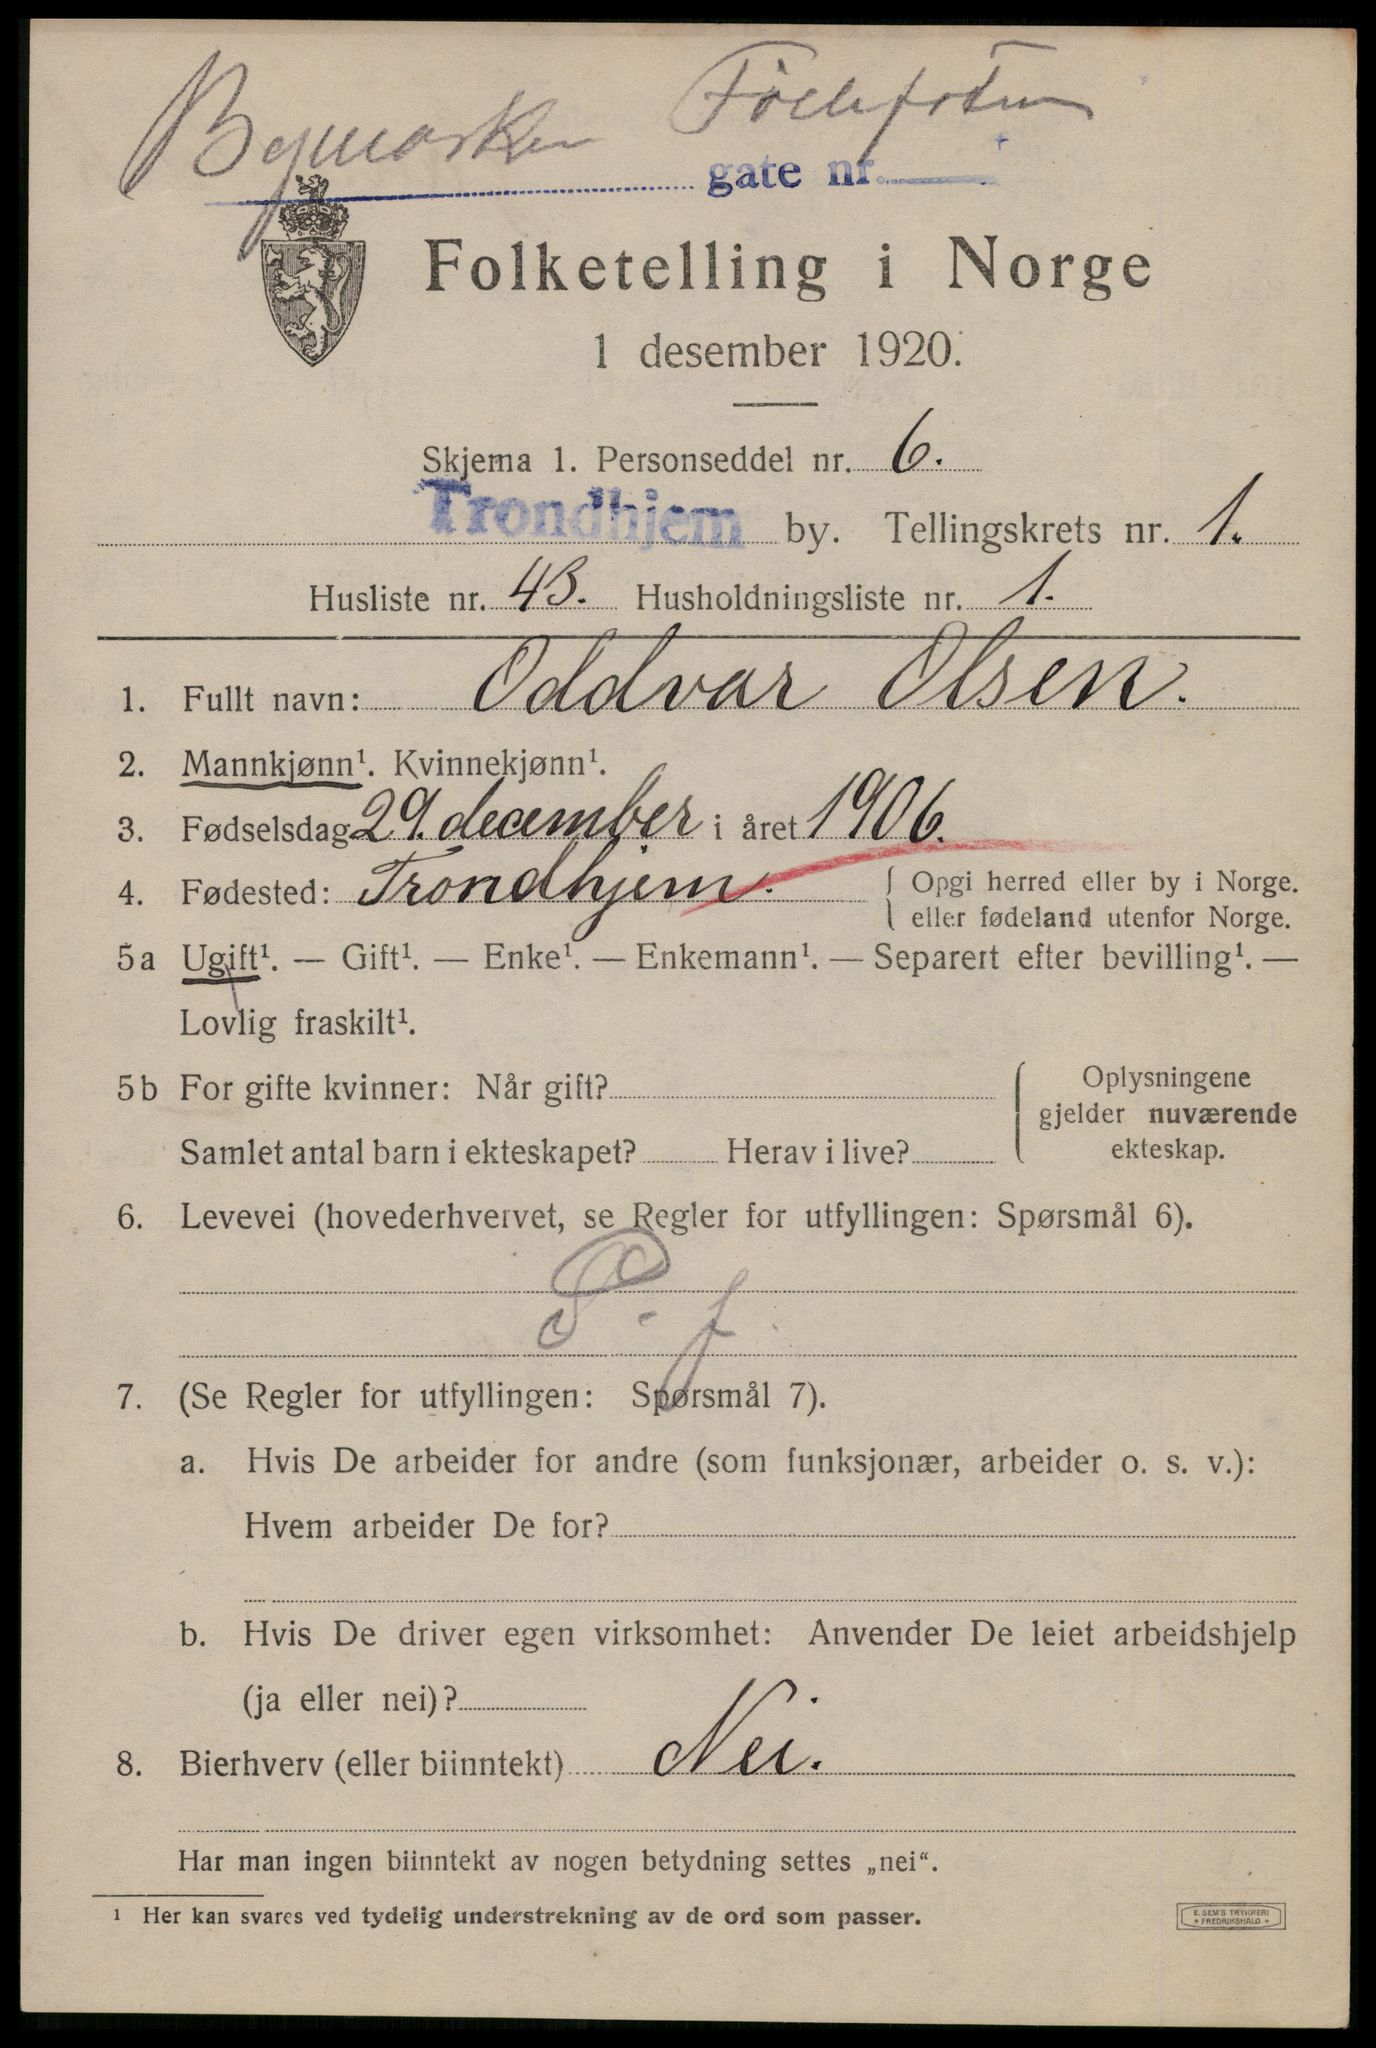 Bymarken
gate nr.
Folketelling i Norge
1 desember 1920.
Skjema 1. Personseddel nr. 6.
Trondhjem by. Tellingskrets nr. 1.
Husliste nr. 43. Husholdningsliste nr. 1.
1. Fullt navn: Oddvar Olsen.
2. Mannkjønn¹. Kvinnekjønn¹.
3. Fødselsdag 29. december i året 1906.
4. Fødested: Trondhjem. { Opgi herred eller by i Norge.
eller fødeland utenfor Norge.
5a Ugift¹. — Gift¹. — Enke¹. — Enkemann¹. — Separert efter bevilling¹. —
Lovlig fraskilt¹.
5b For gifte kvinner: Når gift?
Samlet antal barn i ekteskapet? Herav i live?
Oplysningene
gjelder nuværende
ekteskap.
6. Levevei (hovederhvervet, se Regler for utfyllingen: Spørsmål 6).
7. (Se Regler for utfyllingen: Spørsmål 7).
a. Hvis De arbeider for andre (som funksjonær, arbeider o. s. v.):
Hvem arbeider De for?
b. Hvis De driver egen virksomhet: Anvender De leiet arbeidshjelp
(ja eller nei)?
8. Bierhverv (eller biinntekt) Nei.
Har man ingen biinntekt av nogen betydning settes „nei“.
¹ Her kan svares ved tydelig understrekning av de ord som passer.
E. SEM'S TRYKKERI
FREDRIKSHALD